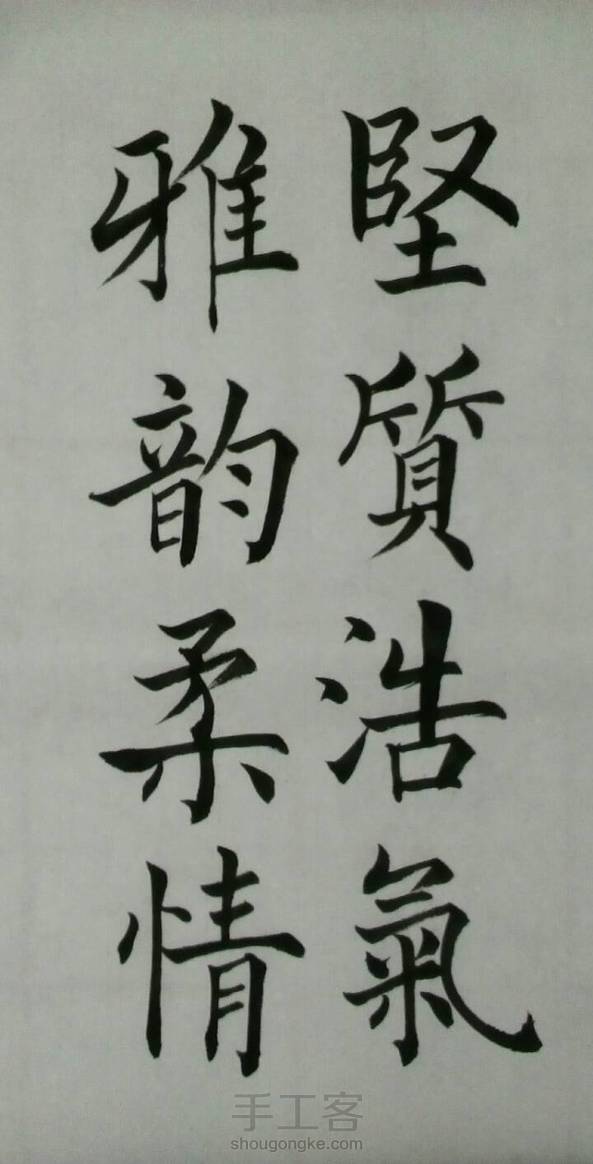 堅質浩氣
雅韵柔情
手工客
shougongke.com